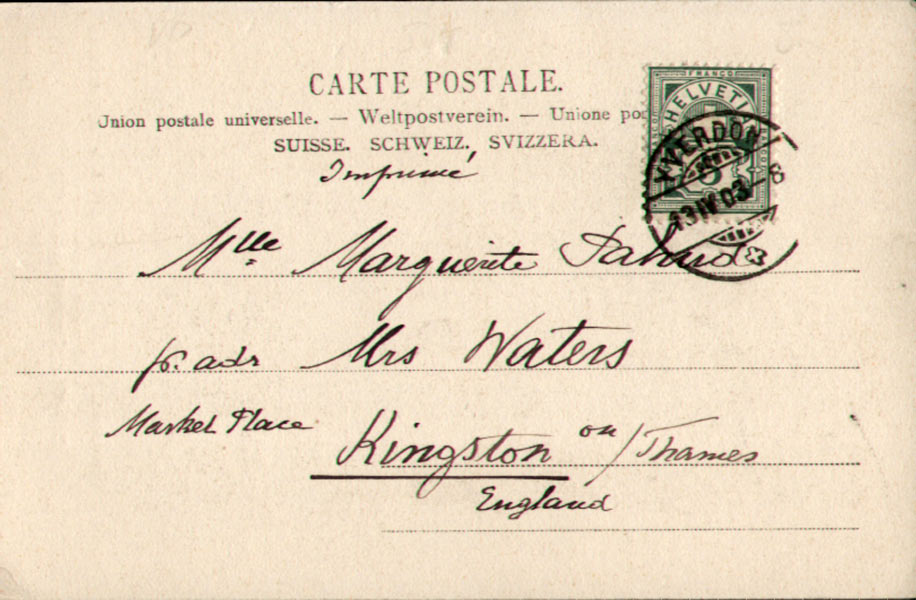 CARTE POSTALE.
Union postale universelle. — Weltpostverein. — Unione po
SUISSE. SCHWEIZ. SVIZZERA.
Imprimé
FRANCO
HELVETI
5
YVERDON
13 IV 03 — 8
Mlle Marguerite Pahud
pr. adr Mrs Waters
Market Place
Kingston on/Thames
England